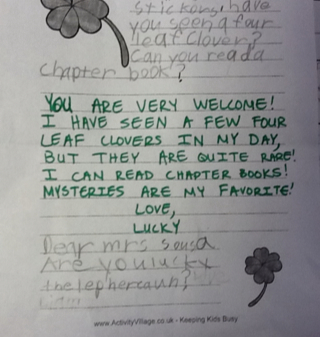 stickers, have
you seen a four
leaf clover?
Can you read a
chapter book?
YOU ARE VERY WELCOME!
I HAVE SEEN A FEW FOUR
LEAF CLOVERS IN MY DAY,
BUT THEY ARE QUITE RARE!
I CAN READ CHAPTER BOOKS!
MYSTERIES ARE MY FAVORITE!
LOVE,
LUCKY
Dear mrs sousa
Are you lucky
the lephercaun?
www.ActivityVillage.co.uk - Keeping Kids Busy